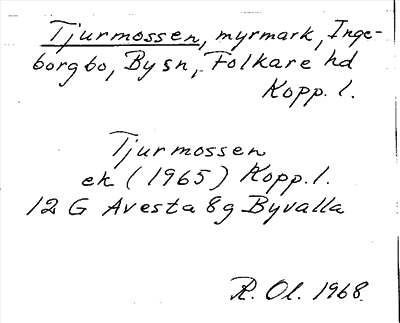 Tjurmossen, myrmark, Inge-
borgbo, By sn, Folkare hd
Kopp. l.
Tjurmossen
ek (1965) Kopp. l.
12 G Avesta 8g Byvalla
R. Ol. 1968